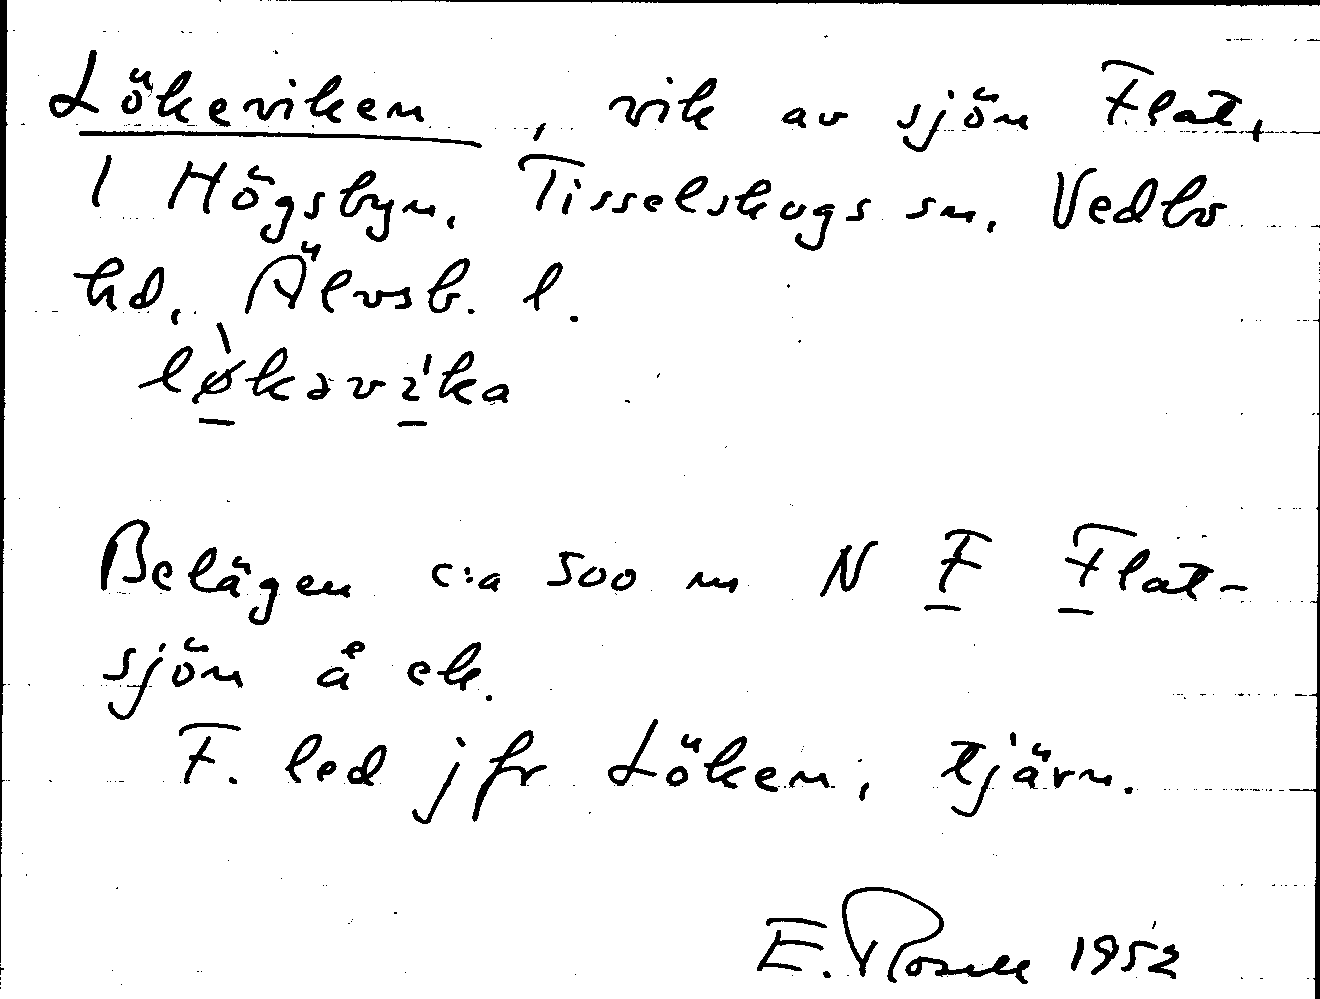 Lökeviken, vik av sjön Flat,
1 Högsbyn, Tisselskogs sn, Vedbo
hd, Älvsb. l.
lø̀kəvı̍ka
Belägen c:a 500 m N F Flat-
sjön å ek.
F. led jfr Löken, tjärn.
E. Rosell 1952